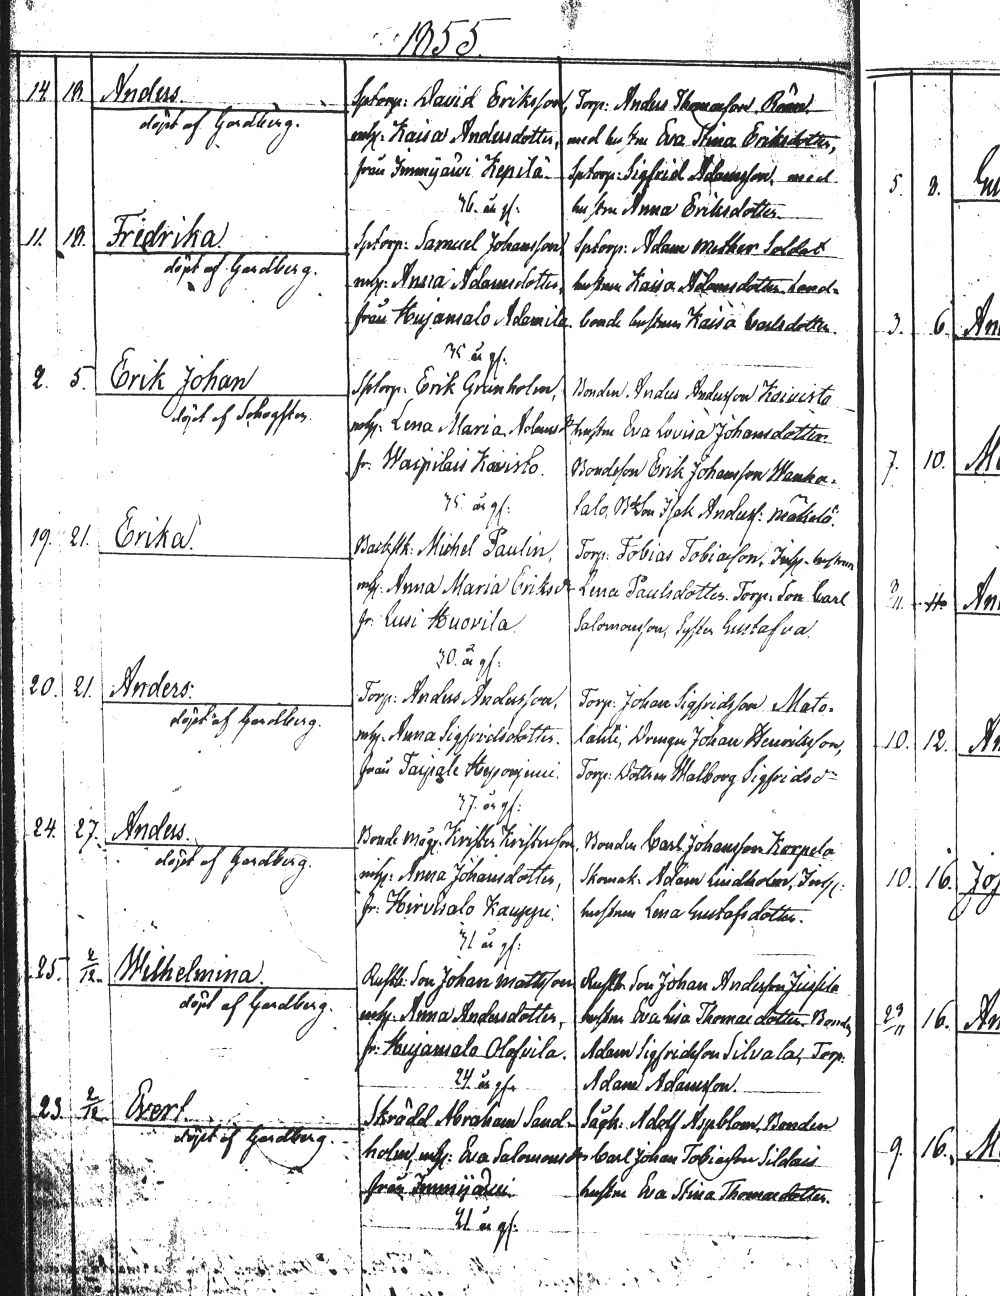 1855.
14. 18. Anders
döpt af Gardberg.
Sptorp: David Eriksson,
mh: Kaisa Andersdotter,
från Immijärvi Kepilä
36. år gl:
Torp: Anders Thomasson,
med hustru Eva Stina Eriksdotter,
Sptorp: Sigfrid Adamsson, med
hustru Anna Eriksdotter
11. 18. Fredrika
döpt af Gardberg.
Sptorp: Samuel Johansson,
mh: Anna Adamsdotter,
från Hujansalo Adamila
35 år gl:
Sptorp: Adam Soldat
hustrun Kaisa Adamsdotter,
bonde hustrun Kaisa Carlsdotter
2. 5. Erik Johan
döpt af
Sptorp: Erik Grönholm,
mh: Lena Maria Adamsdr
fr. Koivisto.
35 år gl:
Bonden Anders Andersson Koivisto
hustru Eva Lovisa Johansdotter.
Bondeson Erik Johansson
salo, Isak Anderss:
19. 21. Erika
Backstk: Michel Paulin,
mh: Anna Maria Eriksdr
fr. Lusi Huovila
30. år gl:
Torp: Tobias Tobiasson, hustrun
Lena Paulsdotter. Torp: Son Carl
Salomonsson, Syster Gustafva.
20. 21. Anders:
döpt af Gardberg.
Torp: Anders Andersson,
mh: Anna Sigfridsdotter.
från Taipale
37. år gl:
Torp: Johan Sigfridsson Mato-
lahti, Drengen Johan Henriksson,
Torp: Dottren Walborg Sigfridsdr
24. 27. Anders
döpt af Gardberg.
Bonde måg: Krister Kristersson,
mh: Anna Johansdotter,
fr. Hirvisalo Kauppi.
31 år gl:
Bonden Carl Johansson Korpela
Skomak: Adam Lindholm,
hustrun Lena Gustafsdotter.
25. 2/12. Wilhelmina.
döpt af Gardberg.
Rusth: Son Johan Mattsson
mh: Anna Andersdotter,
fr. Hujansalo Olofvila.
24 år gl:
Rusth: Son Johan Andersson Jussila
hustru Eva Lisa Thomasdotter, Bonden
Adam Sigfridsson Silvala, Torp:
Adam Adamsson.
23. 2/12 Evert.
döpt af Gardberg
Skrädd Abraham Sand-
holm, mh: Eva Salomonsdr
från Immijärvi
21 år gl:
Adolf Aspblom, Bonden
Carl Johan Tobiasson
hustru Eva Stina Thomasdotter.
5. 8.
3. 6.
7. 10.
10. 12.
10. 16.
23/11 16.
9. 16.